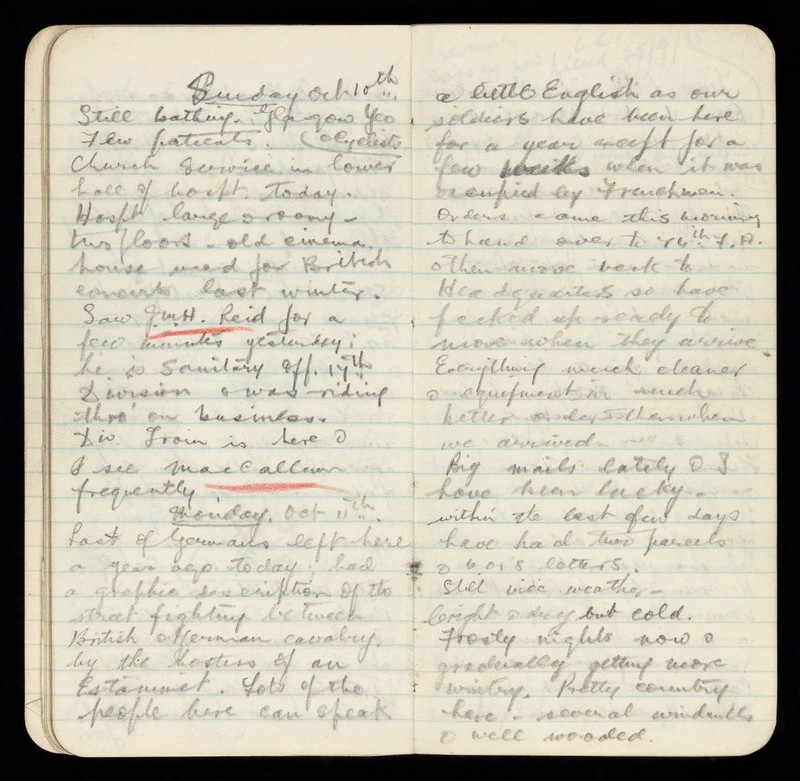 Sunday Oct 10th.
Still bathing. Glasgow Yeo
Few patients. (Cyclists
Church Service in lower
hall of hospt. today.
Hospt large & roomy -
two floors - old cinema
house used for British
concerts last winter.
Saw J.W.H. Reid for a
few minutes yesterday;
he is Sanitary Off. 17th
Division & was riding
thro' on business.
Div Train is here &
I see MacCallum
frequently
Monday. Oct 11th.
Last of Germans left here
a year ago today; had
a graphic description of the
street fighting between
British & German cavalry.
by the hostess of an
Estaminet. Lots of the
people here can speak
a little English as our
soldiers have been here
for a year except for a
few weeks when it was
occupied by Frenchmen.
Orders came this morning
to hand over to F.A.
& then move back to
Headquarters so have
packed up ready to
move when they arrive.
Everything much cleaner
& equipment in much
better order than when
we arrived.
Big mails lately & I
have been lucky -
within the last few days
have had two parcels
& 6 or 8 letters.
Still nice weather -
bright & dry but cold.
Frosty nights now &
gradually getting more
wintry. Pretty country
here - several windmills
& well wooded.